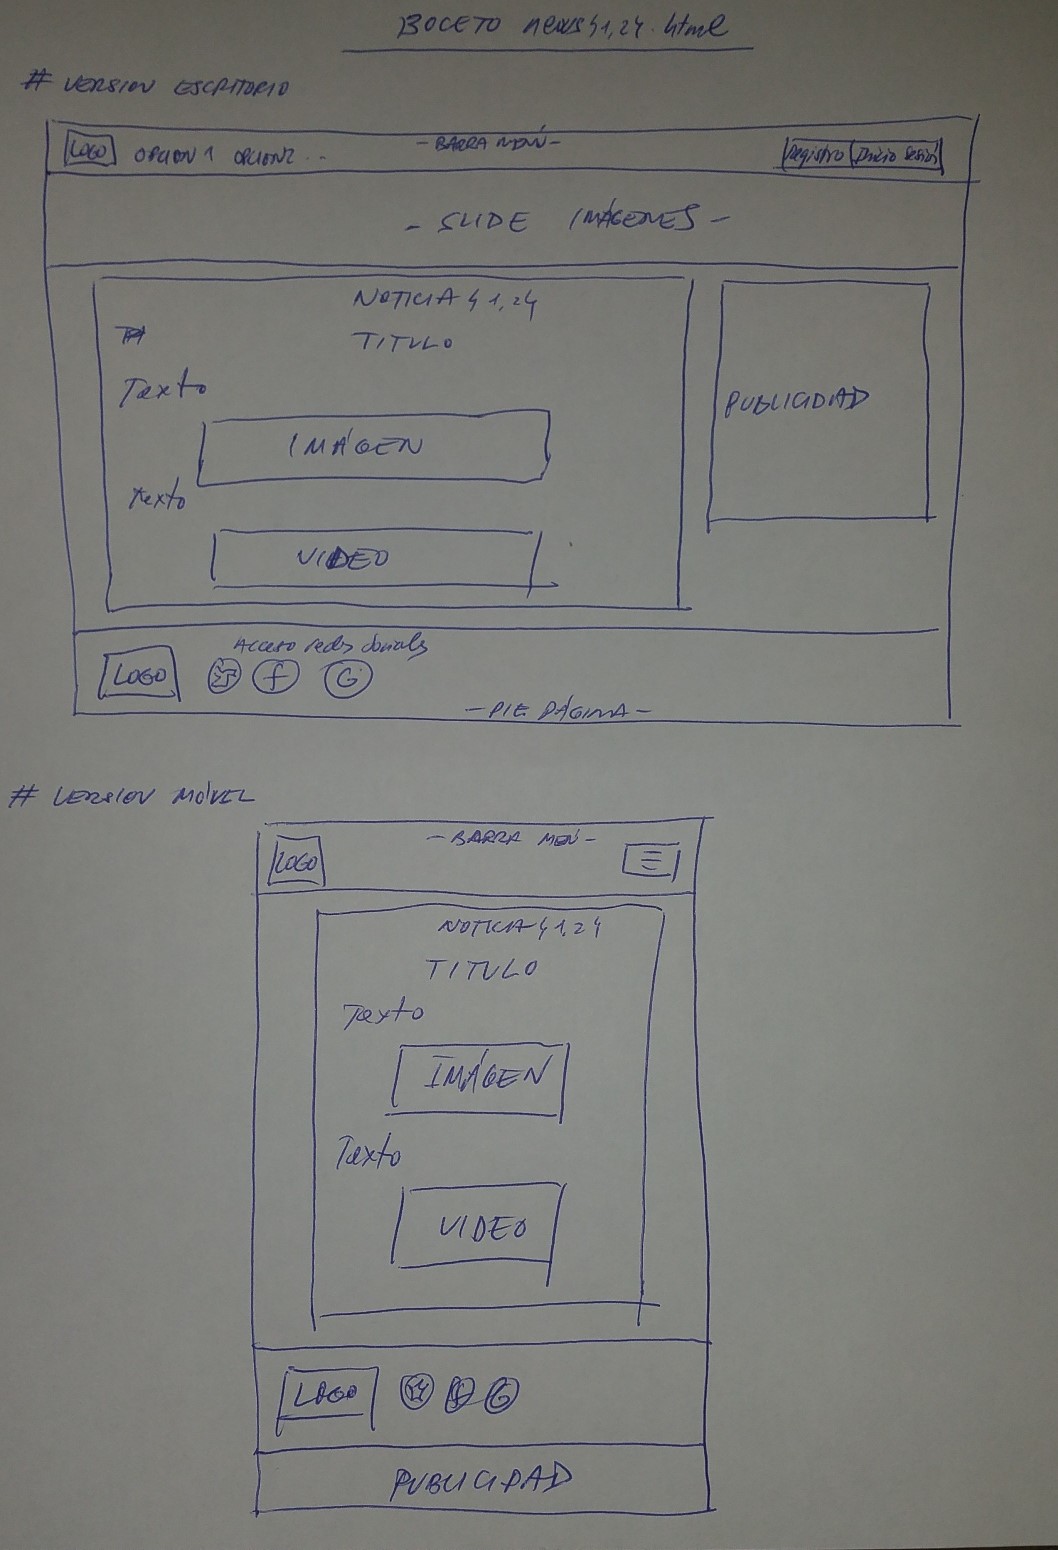 BOCETO news{1,2}.html
# VERSION ESCRITORIO
LOGO OPCION 1 OPCION2 ... - BARRA MENÚ - Registro Inicio Sesión
- SLIDE IMÁGENES -
NOTICIA {1,2}
TITULO
Texto
PUBLICIDAD
IMÁGEN
Texto
VIDEO
Acceso redes sociales
LOGO f G
- PIE PÁGINA -
# VERSION MÓVIL
- BARRA MENÚ -
LOGO
NOTICIA {1,2}
TITULO
Texto
IMÁGEN
Texto
VIDEO
LOGO f G
PUBLICIDAD